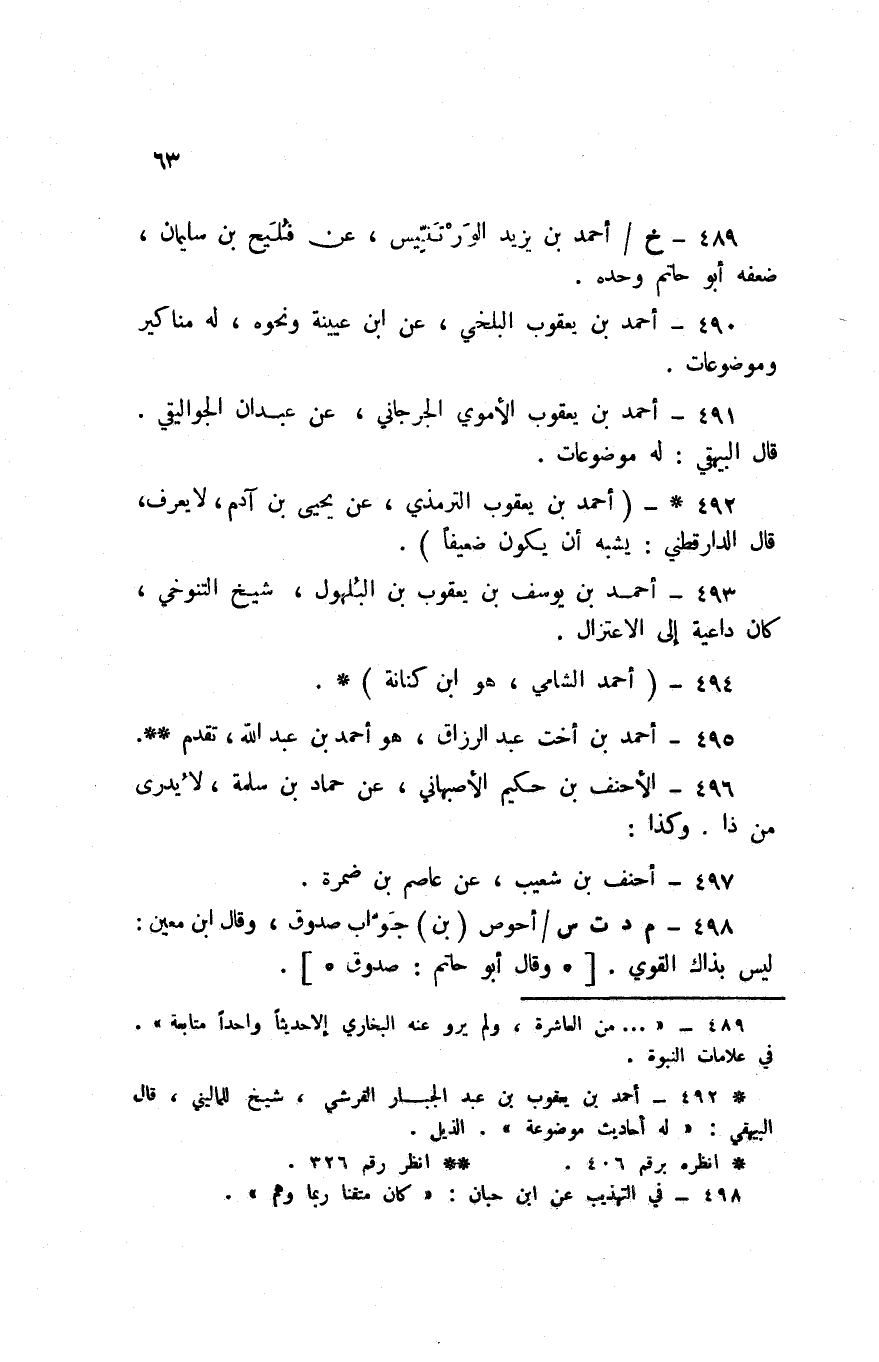 ٦٣
٤٨٩ – خ / أحمد بن يزيد الوَرْتَنِّيس ، عن فُلَيح بن سليمان ،
ضعفه أبو حاتم وحده .
٤٩٠ – أحمد بن يعقوب البلخي ، عن ابن عيينة ونحوه ، له مناكير
وموضوعات .
٤٩١ – أحمد بن يعقوب الأموي الجرجاني ، عن عبدان الجواليقي .
قال البيهقي : له موضوعات .
٤٩٢ * – ( أحمد بن يعقوب الترمذي ، عن يحيى بن آدم ، لا يعرف ،
قال الدارقطني : يشبه أن يكون ضعيفاً ) .
٤٩٣ – أحمد بن يوسف بن يعقوب بن البُلهول ، شيخ التنوخي ،
كان داعية إلى الاعتزال .
٤٩٤ – ( أحمد الشامي ، هو ابن كنانة ) * .
٤٩٥ – أحمد بن أخت عبد الرزاق ، هو أحمد بن عبد الله ، تقدم ** .
٤٩٦ – الأحنف بن حكيم الأصبهاني ، عن حماد بن سلمة ، لا يُدرى
من ذا . وكذا :
٤٩٧ – أحنف بن شعيب ، عن عاصم بن ضمرة .
٤٩٨ – م د ت س / أحوص ( بن ) جَوَّاب صدوق ، وقال ابن معين :
ليس بذاك القوي . [ ٥ وقال أبو حاتم : صدوق ٥ ] .
٤٨٩ – « ... من العاشرة ، ولم يرو عنه البخاري إلا حديثاً واحداً متابعة » .
في علامات النبوة .
* ٤٩٢ – أحمد بن يعقوب بن عبد الجبار القرشي ، شيخ للماليني ، قال
البيهقي : « له أحاديث موضوعة » . الذيل .
* انظره برقم ٤٠٦ . ** انظر رقم ٣٢٦ .
٤٩٨ – في التهذيب عن ابن حبان : « كان متقنا ربما وهم » .